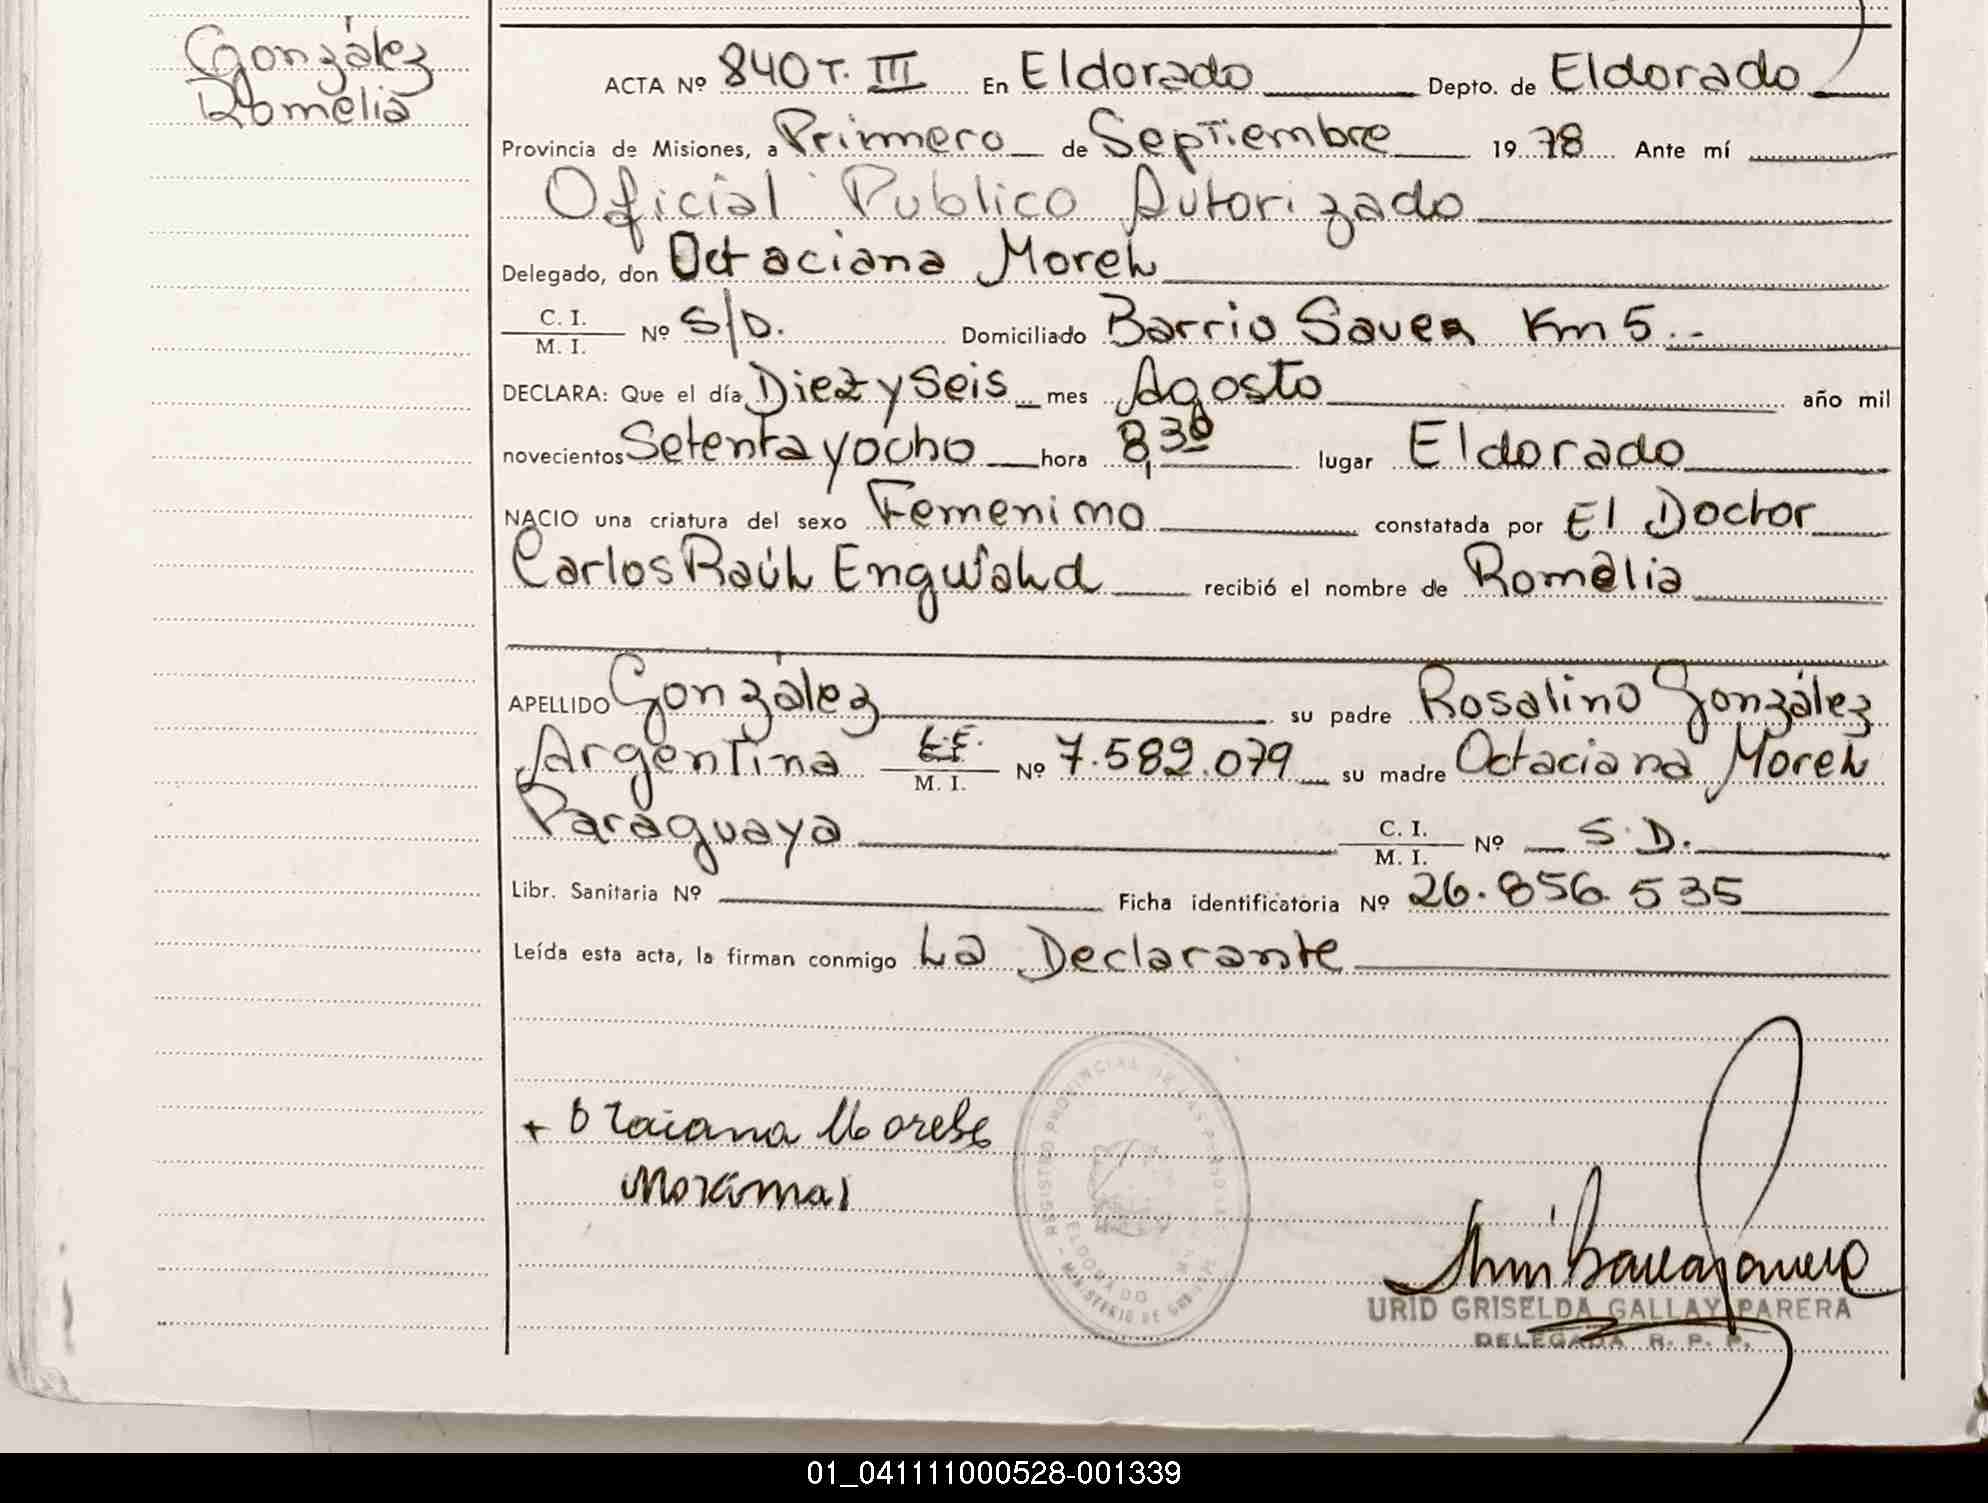 González
Romelia
ACTA Nº 840 T. III En Eldorado Depto. de Eldorado
Provincia de Misiones, a Primero de Septiembre 1978 Ante mí
Oficial Publico Autorizado
Delegado, don Octaciana Morel
C. I.
M. I. Nº S/D. Domiciliado Barrio Sauer Km 5..
DECLARA: Que el día Diez y Seis mes Agosto año mil
novecientos Setenta y ocho hora 8,30 lugar Eldorado
NACIO una criatura del sexo Femenino constatada por El Doctor
Carlos Raúl Engwald recibió el nombre de Romelia
APELLIDO González su padre Rosalino González
Argentina M. I. Nº 7.582.079 su madre Octaciana Morel
Paraguaya C. I. M. I. Nº S. D.
Libr. Sanitaria Nº Ficha identificatoria Nº 26.856.535
Leída esta acta, la firman conmigo La Declarante
REGISTRO PROVINCIAL DE LAS PERSONAS
ELDORADO
MINISTERIO DE GOBIERNO
URID GRISELDA GALLAY PARERA
DELEGADA R. P. P.
01_041111000528-001339